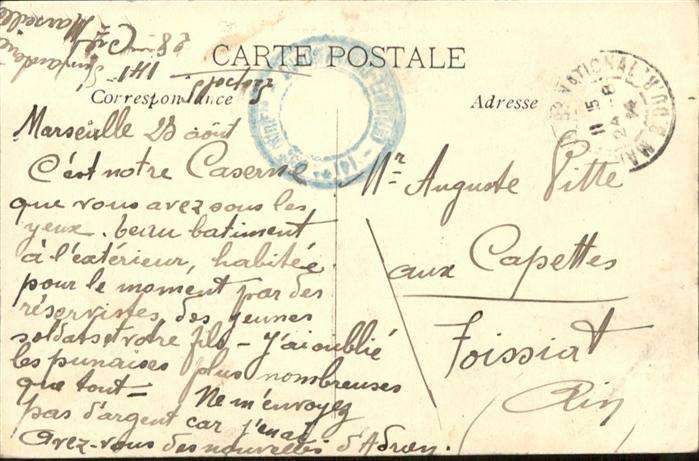 CARTE POSTALE
Correspondance
Adresse
28me Cie
141
Marseille
Marseille 23 août
C'est notre Caserne
que vous avez sous les
yeux. beau batiment
à l'extérieur, habitée
pour le moment par des
réservistes, des jeunes
soldats et votre fils - J'ai oublié
les punaises plus nombreuses
que tout - Ne m'envoyez
pas d'argent car j'en ai
Avez-vous des nouvelles d'Adrien.
Mr Auguste Pitte
aux Capettes
Foissiat
Ain
NATIONAL B.DU.R
11 15
24 - 8
14